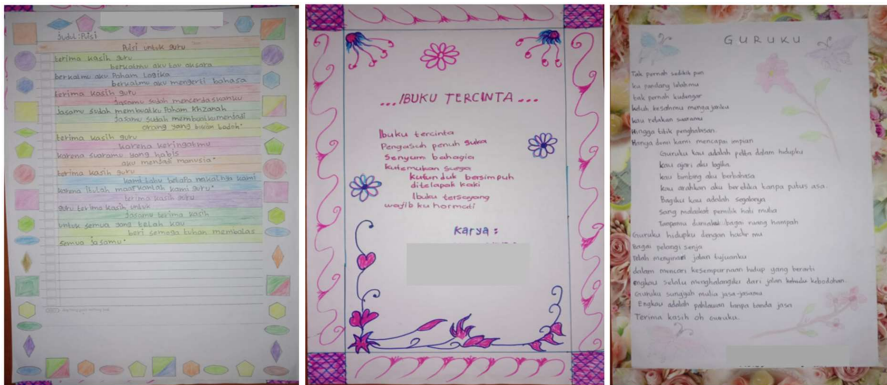 Judul : Puisi
Puisi untuk guru
terima kasih guru
berkatmu aku
berkatmu aku Paham Logika
berkatmu aku mengerti bahasa
terima kasih guru
Jasamu sudah mencerdaskanku
Jasamu sudah membuatku Paham
Jasamu sudah membuatku menjadi
orang yang
terima kasih guru
karena keringatmu
karena suaramu yang habis
aku menjadi manusia"
terima kasih guru
kami
guru"
terima kasih guru
guru terima kasih untuk
Jasamu terima kasih
untuk semua yang telah kau
beri semoga tuhan membalas
semua Jasamu"
...IBUKU TERCINTA...
Ibuku tercinta
Pengasuh penuh suka
Senyum bahagia
kutemukan surga
Kutunduk bersimpuh
ditelapak kaki
Ibuku tersayang
wajib ku hormati
Karya :
GURUKU
Tak pernah sedikit pun
ku pandang lelahmu
tak pernah kudengar
kau relakan suaramu
Hingga titik penghabisan
Hanya demi kami mencapai impian
Guruku kau adalah pelita dalam hidupku
kau ajari aku logika
kau bimbing aku berbahasa
kau arahkan aku berdiri tanpa putus asa
Bagiku kau adalah segalanya
Sang malaikat pemilik hati mulia
Guruku hidupku dengan hadirmu
bagai pelangi senja
telah menyinari jalan tujuanku
dalam mencari kesempurnaan hidup yang berarti
engkau selalu menghalangiku dari jalan kebodohan
Guruku sungguh mulia jasa-jasamu
Engkau adalah pahlawan tanpa tanda jasa
Terima kasih oh guruku